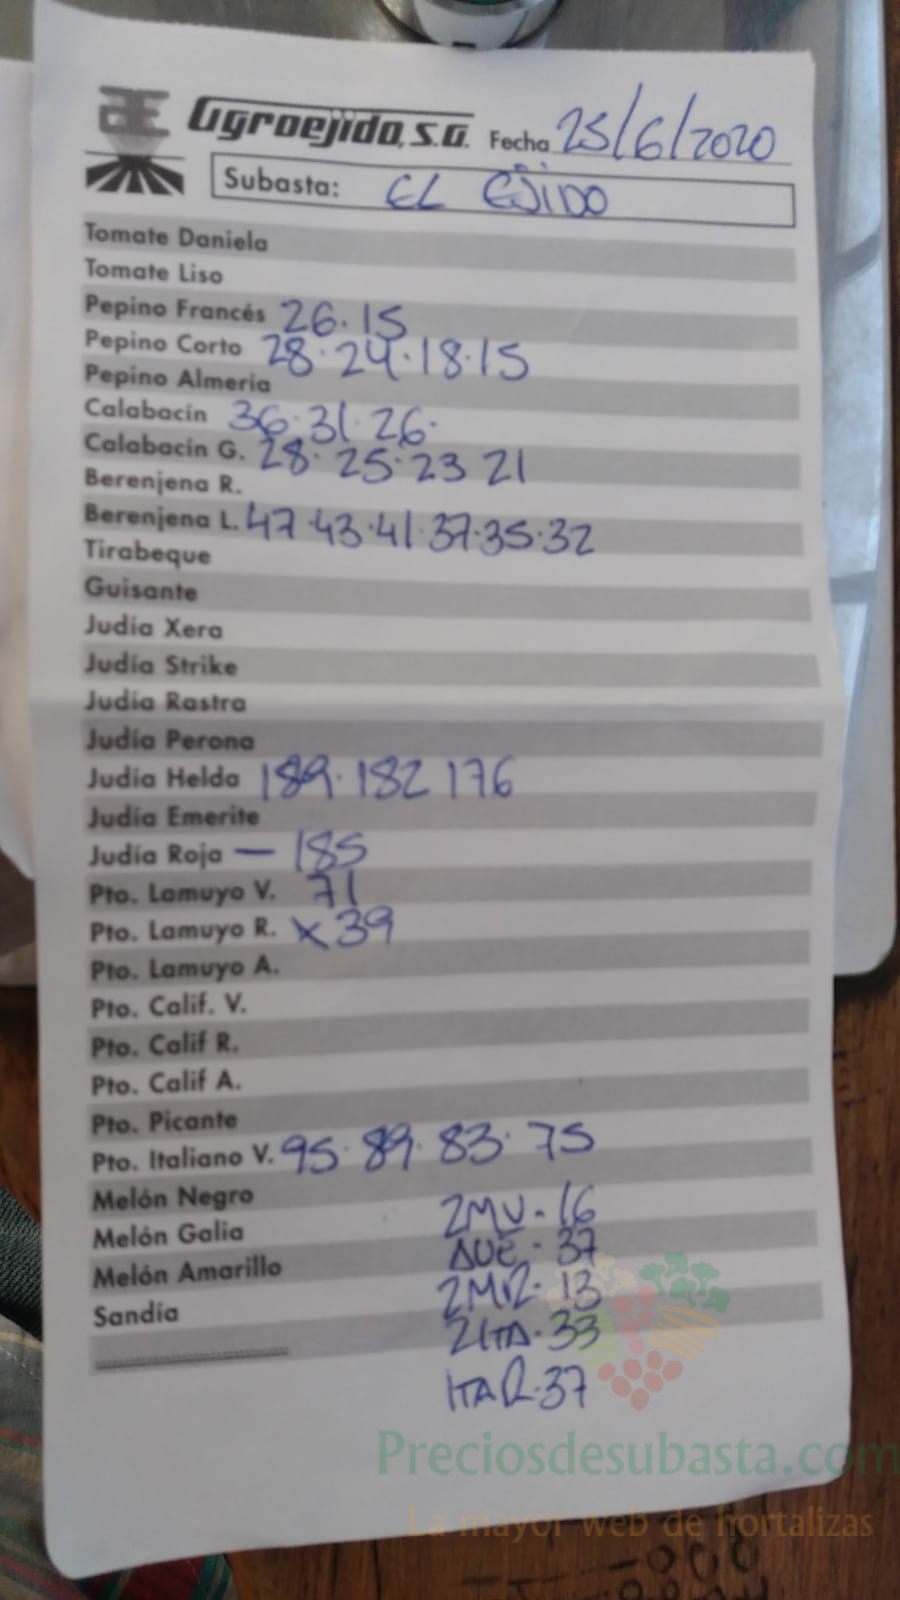 Agroejido, S.A. Fecha 25/6/2020
Subasta: EL EJIDO
Tomate Daniela
Tomate Liso
Pepino Francés 26·15
Pepino Corto 28·24·18·15
Pepino Almería
Calabacín 36·31·26·
Calabacín G. 28·25·23 21
Berenjena R.
Berenjena L. 47·43·41·37·35·32
Tirabeque
Guisante
Judía Xera
Judía Strike
Judía Rastra
Judía Perona
Judía Helda 189·182 176
Judía Emerite
Judía Roja — 185
Pto. Lamuyo V. 71
Pto. Lamuyo R. x 39
Pto. Lamuyo A.
Pto. Calif. V.
Pto. Calif R.
Pto. Calif A.
Pto. Picante
Pto. Italiano V. 95·89·83·75
Melón Negro
2MV·16
Melón Galia
AVE·37
Melón Amarillo
2MR·13
Sandía
2ITA·33
ITAR·37
Preciosdesubasta.com
La mayor web de hortalizas